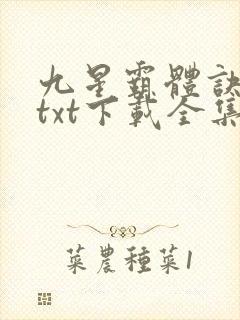 九星霸體訣
txt下載全集
菜農種菜1